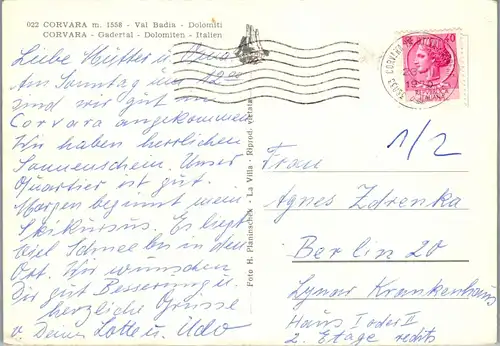 022 CORVARA m. 1558 - Val Badia - Dolomiti
CORVARA - Gadertal - Dolomiten - Italien
Liebe Mutter u. Oma
Am Sonntag um 12.00
sind wir gut in
Corvara angekommen
Wir haben herrlichen
Sonnenschein. Unser
Quartier ist gut.
Morgen beginnt mein
Skikursus. Es liegt
viel Schnee bis in den
Ort. Wir wünschen
Dir gut Besserung u.
herzliche Grüsse
v. Deiner Lotte u. Udo
Foto H. Planinschek - La Villa - Riprod. vietata
1/2
Frau
Agnes Zdrenka
Berlin 20
Lynar Krankenhaus
Haus I oder II
2. Etage rechts